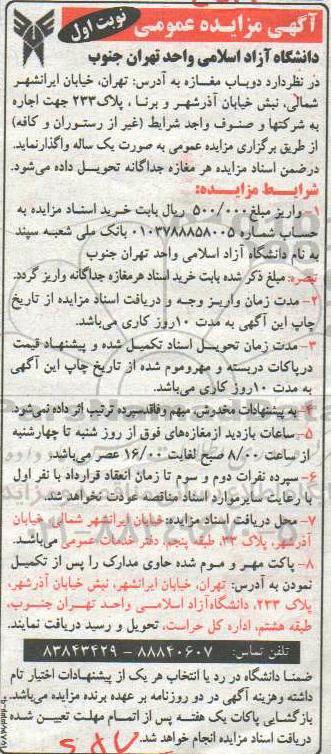 آگهی مزایده عمومی
نوبت اول
دانشگاه آزاد اسلامی واحد تهران جنوب
در نظردارد دوباب مغازه به آدرس: تهران، خیابان ایرانشهر
شمالی، نبش خیابان آذرشهر و برنا ، پلاک۲۳۳ جهت اجاره
به شرکتها و صنوف واجد شرایط (غیر از رستوران و کافه)
از طریق برگزاری مزایده عمومی به صورت یک ساله واگذارنماید.
درضمن اسناد مزایده هر مغازه جداگانه تحویل داده می‌شود.
شرایط مزایده:
۱- واریز مبلغ ۵۰۰/۰۰۰ ریال بابت خرید اسناد مزایده به
حساب شماره ۰۱۰۳۷۸۸۸۵۸۰۰۵ بانک ملی شعبه سپند
به نام دانشگاه آزاد اسلامی واحد تهران جنوب
تبصره: مبلغ ذکر شده بابت خرید اسناد هرمغازه جداگانه واریز گردد.
۲- مدت زمان واریز وجه و دریافت اسناد مزایده از تاریخ
چاپ این آگهی به مدت ۱۰روز کاری می‌باشد.
۳- مدت زمان تحویل اسناد تکمیل شده و پیشنهاد قیمت
درپاکات دربسته و مهروموم شده از تاریخ چاپ این آگهی
به مدت ۱۰روز کاری می‌باشد.
۴- به پیشنهادات مخدوش، مبهم وفاقدسپرده ترتیب اثر داده نمی‌شود
۵- ساعات بازدید ازمغازه‌های فوق از روز شنبه تا چهارشنبه
از ساعت ۸/۰۰ صبح لغایت ۱۶/۰۰ عصر می‌باشد.
۶- سپرده نفرات دوم و سوم تا زمان انعقاد قرارداد با نفر اول
با رعایت سایرموارد اسناد مناقصه عودت نخواهد شد.
۷- محل دریافت اسناد مزایده: خیابان ایرانشهر شمالی، خیابان
آذرشهر، پلاک ۳۳، طبقه پنجم، دفتر خدمات عمومی می‌باشد.
۸- پاکت مهر و موم شده حاوی مدارک را پس از تکمیل
نمودن به آدرس: تهران، خیابان ایرانشهر، نبش خیابان آذرشهر،
پلاک ۲۳۳، دانشگاه‌آزاد اسلامی واحد تهران جنوب،
طبقه هشتم، اداره کل حراست، تحویل و رسید دریافت نمایند.
تلفن تماس: ۸۸۸۴۰۶۰۷ - ۸۳۸۴۳۴۲۹
ضمنا دانشگاه در رد یا انتخاب هر یک از پیشنهادات اختیار تام
داشته وهزینه آگهی در دو روزنامه بر عهده برنده مزایده می‌باشد.
بازگشایی پاکات یک هفته پس از اتمام مهلت تعیین شده
دریافت اسناد مزایده انجام خواهد شد.